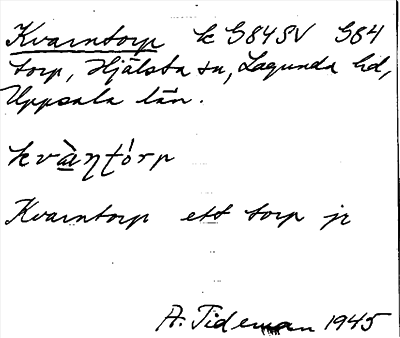 Kvarntorp k G84SV G84
torp, Hjälsta sn, Lagunda hd,
Uppsala län.
kvὰηtórp
Kvarntorp ett torp jr
A. Tideman 1945